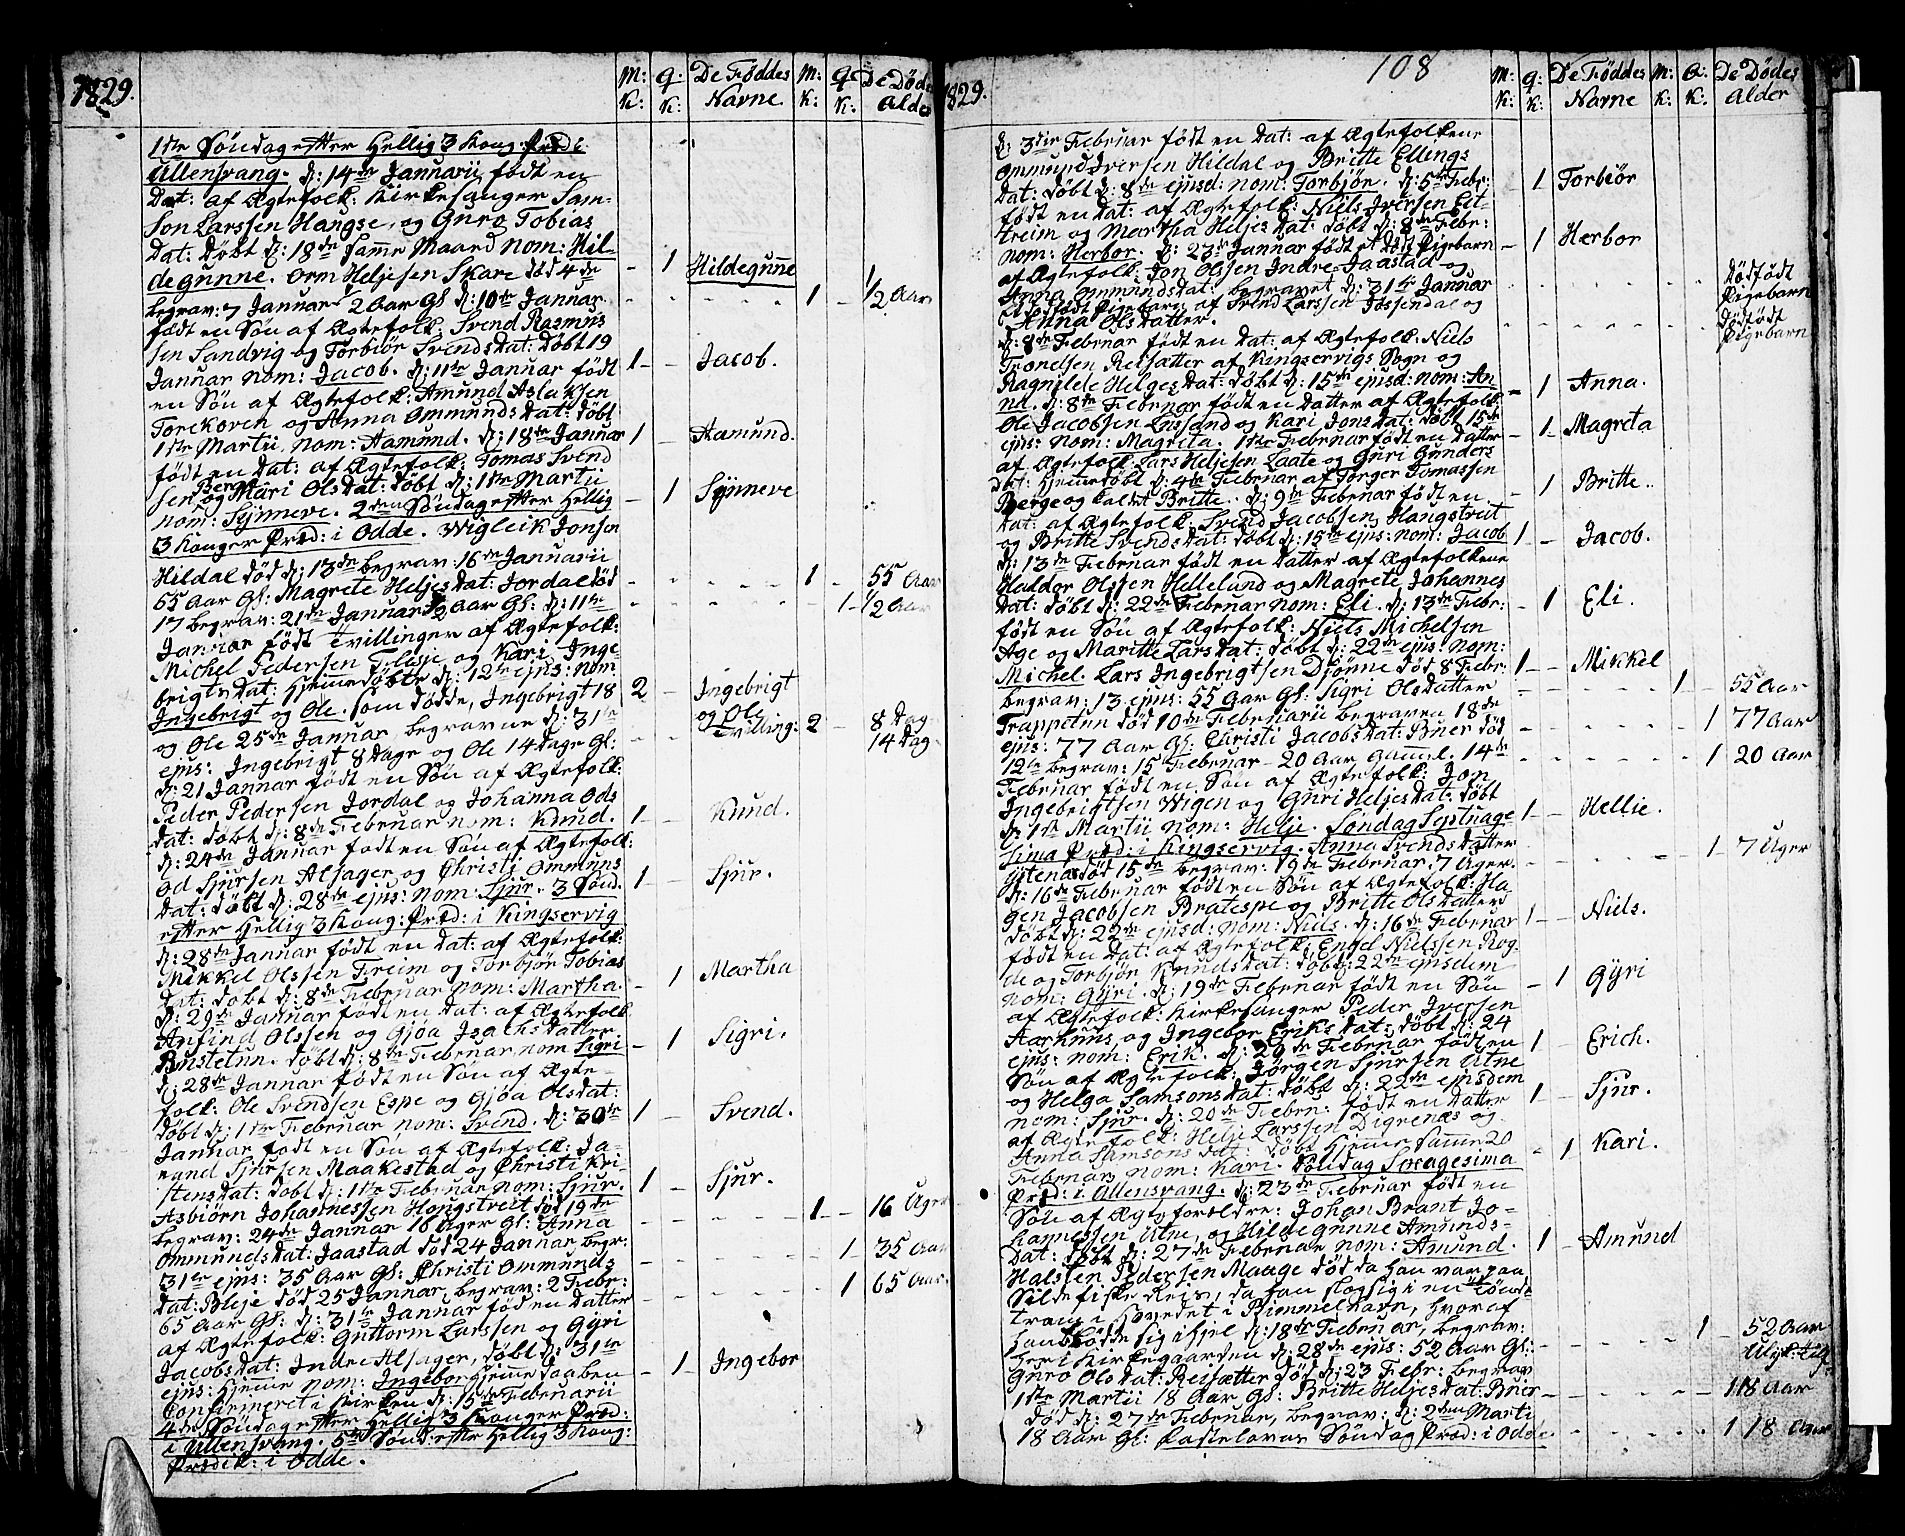 1829.
M: K:
Q: K:
De Føddes Navne.
M: K:
Q K.
De Døde Alder
1ste Søndag efter Hellig 3 Kong: Præd: i
Ullensvang. d: 14de Januarii født en
Dat: af Ægtefolk: Kirkesanger Sam-
son Larssen Hangse, og Guro Tobias
Dat: Døbt d: 18de samme Maaned nom: Hil-
degunne. Orm Heljesen Skare død 4de - 1 Hildegunne
begrav: 7 Januar ½ Aar Gl. d: 10de Januar 1 - ½ Aar
født en Søn af Ægtefolk: Svend Rasmus
sen Sandvig og Torbiør Svends Dat: Døbt 19
Januar nom: Jacob. d: 11te Januar født 1 - Jacob.
en Søn af Ægtefolk: Amund Aslaksen
Torekoven og Anna Ommunds Dat: Døbt
1ste Martii nom: Aamund. d: 18de Januar 1 - Aamund.
født en Dat: af Ægtefolk: Tomas Svend
sen Berge og Mari Ols Dat: Døbt d: 1ste Martii
nom: Synneve. 2den Søndag efter Hellig - 1 Synneve
3 Konger Præd: i Odde. Wigleik Jonsen
Hildal død d: 13de begrav: 16de Januarii
55 Aar Gl: Magrete Heljes Dat: Jordal død 1 - 55 Aar
17 begrav: 21de Januar ½ Aar Gl: d: 11te 1 - ½ Aar
Januar født tvillinger af Ægtefolk:
Michel Pedersen Flesje og Kari Inge-
brigts Dat: Hjemmedøbte d: 12te ejus: nom:
Ingebrigt og Ole. som døde, Ingebrigt 18 2 - Ingebrigt
og Ole 25de Januar begravne d: 31te og Ole tvilling: 2 - 8 Dag
ejus: Ingebrigt 8 Dage og Ole 14 Dage Gl: 14 Dag
d: 21 Januar født en Søn af Ægtefolk:
Peder Pedersen Jordal og Johanna Ods
Dat: døbt d: 8de Februar nom: Knud. 1 - Knud.
d: 24de Januar født en Søn af Ægtefolk:
Od Sjursen Alsager og Christi Ommunds
Dat: døbt d: 28de ejus: nom: Sjur. 3 Sønd. 1 - Sjur.
efter Hellig 3 Kong: Præd: i Kingservig
d: 28de Januar født en Dat: af Ægtefolk:
Mikkel Olssen Freim og Torbjør Tobias
Dat: døbt d: 8de Februar nom: Martha. - 1 Martha
d: 29de Januar født en Dat: af Ægtefolk
Anfind Olssen og Gjøa Isachs Datter
Bustetun. døbt d: 8de Februar nom Sigri - 1 Sigri.
d: 28de Januar født en Søn af Ægte-
folk: Ole Svendsen Espe og Gjøa Ols Dat:
døbt d: 1ste Februar nom: Svend. d: 30te 1 - Svend.
Januar født en Søn af Ægtefolk: Ja-
Sjursen Maakestad og Christi Kri-
stens Dat: døbt d: 1ste Februar nom: Sjur. 1 - Sjur.
Asbiørn Johannessen Hongstreit død 19de
begrav: 24de Januar 16 Uger Gl: Anna 1 - 16 Uger
Ommunds Dat: Jaastad død 24 Januar begr: 1 - 35 Aar
31te ejus: 35 Aar Gl: Christi Ommunds
Dat: Bleje død 25 Januar, begrav: 2 Febr: 1 65 Aar.
65 Aar Gl: d: 31te Januar fød en Datter
af Ægtefolk: Guttorm Larssen og Gyri
Jacobs Dat: Indre Alsager, døbt d: 31te
ejus: hjemme nom: Ingebor hjemmedaaben - 1 Ingebor
Confirmeret i Kirken d: 15de Februarii
4de Søndag efter Hellig 3 Konger Præd:
i Ullensvang. 5te Sønd: efter Hellig 3 Kong:
Prædik: i Odde.
1829.
108
M: K:
Q: K:
De Føddes Navne
M: K.
Q: K.
De Dødes Alder
d: 3die Februar født en Dat: af Ægtefolkene
Ommund Iversen Hildal og Britte Ellings
Dat: døbt d: 8de ejusd: nom: Torbjør. d: 5te Febr: 1 Torbiør
født en Dat: af Ægtefolk: Niels Iversen Eit-
treim og Martha Heljes Dat: døbt d: 8de Febr:
nom: Herbor. d: 23de Januar født et død Pigebarn - 1 Herbor
af Ægtefolk: Jon Olssen Indre Jaastad og
Anna Ommunds Dat: begravet d: 31te Januar Dødfødt Pigebarn
et dødfødt Pigebarn af Svend Larssen Jøssendal og
Anna Olsdatter. Dødfødt Pigebarn
d: 8de Februar født en Dat: af Ægtefolk: Niels
Tronelsen Reisæter af Kingservigs Sogn og
Ragnilde Helges Dat: døbt d: 15de ejusd: nom: An-
na. d: 8de Februar født en Datter af Ægtefolk - 1 Anna.
Ole Jacobsen Lusand og Kari Jons Dat: døbt 15de
ejus: nom: Magreta. 1ste Februar født en Datter - 1 - Magreta
af Ægtefolk Lars Heljesen Laate og Guri Gunders
Dat: Hjemmedøbt d: 4de Februar af Torger Tomassen
Berge og kaldet Britte. d: 9de Februar født en - 1 Britte.
Dat: af Ægtefolk: Svend Jacobsen Hangstreit
og Britte Svends Dat: døbt d: 15de ejus: nom: Jacob 1 - Jacob.
d: 13de Februar født en Datter af Ægtefolkene
Haldor Olssen Hellelund og Magrete Johannes
Dat: døbt d: 22de Februar nom: Eli. d: 13de Febr: - 1 Eli.
født en Søn af Ægtefolk: Niels Michelsen
Age og Maritte Lars Dat: døbt d: 22de ejus: nom:
Michel. Lars Ingebrigtsen Djønne død 8 Febr: 1 - Mikkel
begrav: 13 ejus: 55 Aar Gl: Sigri Olsdatter 1 - 55 Aar
Trappetun død 10de Februarii begraven 18de 1 77 Aar
ejus: 77 Aar Gl: Christi Jacobs Dat: Buer død
12te begrav: 15 Februar - 20 Aar Gammel. 14de 1 20 Aar
Februar født en Søn af Ægtefolk: Jon
Ingebrigtsen Wigen og Guri Heljes Dat: døbt
d: 1ste Martii nom: Helje. Søndag Septuage 1 - Hellie.
sima Præd: i Kingservig. Anna Svends Datter
død 15de begrav: 19de Februar 7 Uger. 1 - 7 Uger
d: 16de Februar født en Søn af Ægtefolk: Ha
gen Jacobsen Bratespe og Britte Ols Datter
døbt d: 22de ejusd: nom: Niels. d: 16de Februar 1 - Niels.
født en Dat: af Ægtefolk: Engel Nielssen Rog-
de og Torbjør Knuds Dat: døbt d: 22de ejusdem
nom: Gyri. d: 19de Februar født en Søn - 1 Gÿri
af Ægtefolk: Kirkesanger Peder Iversen
Aarhuus og Ingebor Eriks Dat: døbt d: 24
ejus: nom: Erik. d: 20de Februar født en 1 - Erich.
Søn af Ægtefolk: Jørgen Sjursen Utne
og Helga Samsons Dat: døbt d: 22de ejusdem
nom: Sjur. d: 20de Febru: født en Datter 1 - Sjur.
af Ægtefolk: Helje Larssen Digrenæs og
Anna Samsons Dat: døbt hjemme samme 20
Februar, nom: Kari. Søndag Sexagesima - 1 Kari.
Præd: i Ullensvang. d: 23de Februar født en
Søn af Ægteforoldre: Johan Brant Jo-
hannessen Utne, og Hildegunne Amunds-
Dat: døbt d: 27de Februar nom: Amund. 1 - Amund
Halsten Pedersen Maage død da han var paa
Silde fiske Reis, da han slog sig i en Tønde-
tram i Hovedet i Bimmelhavn, hvoraf
han blødde sig ihjel d: 18de Februar, begrav:
her i Kirkegaarden d: 28de ejus: 52 Aar Gl: 1 - 52 Aar
Guro Ols Dat: Reisætter død d: 23 Febr: begrav
1ste Martii 18 Aar Gl: Britte Heljes Dat: Buer 1 18 Aar
død d: 27de Februar, begrav: d: 2den Marti
18 Aar Gl: Fastelavns Søndag Præd: i Odde 1 18 Aar